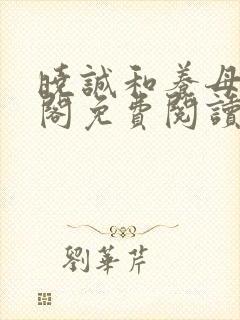 曉誠和養母
閣免費閱讀
劉華芹